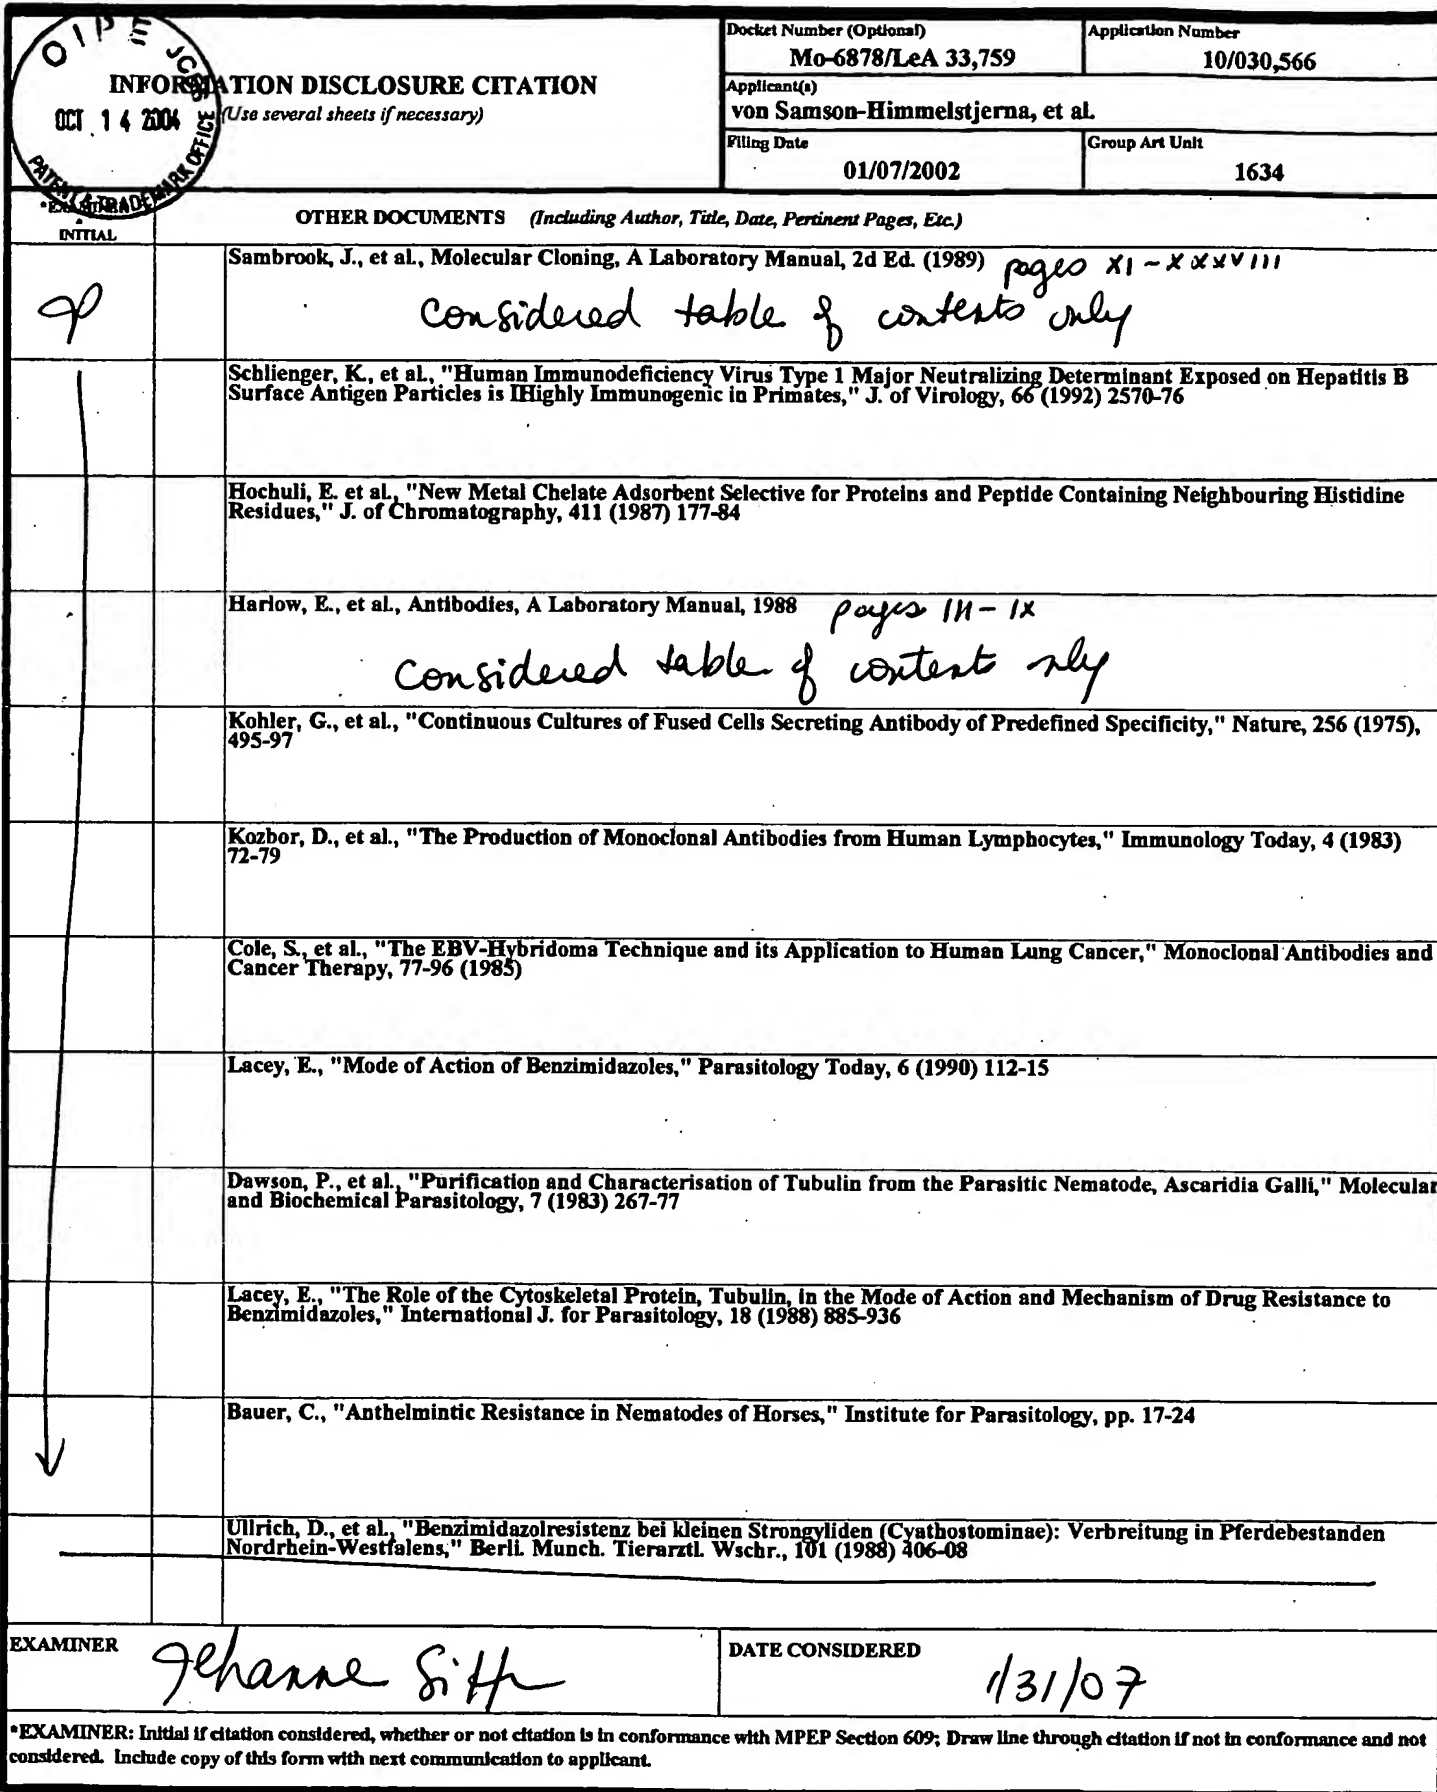 OIPE JC85
OCT 14 2004
PATENT & TRADEMARK OFFICE
INFORMATION DISCLOSURE CITATION
(Use several sheets if necessary)
Docket Number (Optional)
Mo-6878/LeA 33,759
Application Number
10/030,566
Applicant(s)
von Samson-Himmelstjerna, et al.
Filing Date
01/07/2002
Group Art Unit
1634
*EXAMINER
INITIAL
OTHER DOCUMENTS (Including Author, Title, Date, Pertinent Pages, Etc.)
Sambrook, J., et al., Molecular Cloning, A Laboratory Manual, 2d Ed. (1989) pages XI-XXXVIII
Considered table of contents only
Schlienger, K., et al., "Human Immunodeficiency Virus Type 1 Major Neutralizing Determinant Exposed on Hepatitis B
Surface Antigen Particles is IHighly Immunogenic in Primates," J. of Virology, 66 (1992) 2570-76
Hochuli, E. et al., "New Metal Chelate Adsorbent Selective for Proteins and Peptide Containing Neighbouring Histidine
Residues," J. of Chromatography, 411 (1987) 177-84
Harlow, E., et al., Antibodies, A Laboratory Manual, 1988 pages III-IX
Considered table of contents only
Kohler, G., et al., "Continuous Cultures of Fused Cells Secreting Antibody of Predefined Specificity," Nature, 256 (1975),
495-97
Kozbor, D., et al., "The Production of Monoclonal Antibodies from Human Lymphocytes," Immunology Today, 4 (1983)
72-79
Cole, S., et al., "The EBV-Hybridoma Technique and its Application to Human Lung Cancer," Monoclonal Antibodies and
Cancer Therapy, 77-96 (1985)
Lacey, E., "Mode of Action of Benzimidazoles," Parasitology Today, 6 (1990) 112-15
Dawson, P., et al., "Purification and Characterisation of Tubulin from the Parasitic Nematode, Ascaridia Galli," Molecular
and Biochemical Parasitology, 7 (1983) 267-77
Lacey, E., "The Role of the Cytoskeletal Protein, Tubulin, in the Mode of Action and Mechanism of Drug Resistance to
Benzimidazoles," International J. for Parasitology, 18 (1988) 885-936
Bauer, C., "Anthelmintic Resistance in Nematodes of Horses," Institute for Parasitology, pp. 17-24
Ullrich, D., et al., "Benzimidazolresistenz bei kleinen Strongyliden (Cyathostominae): Verbreitung in Pferdebestanden
Nordrhein-Westfalens," Berli. Munch. Tierarztl. Wschr., 101 (1988) 406-08
EXAMINER
Jehanne Sitt
DATE CONSIDERED
1/31/07
*EXAMINER: Initial if citation considered, whether or not citation is in conformance with MPEP Section 609; Draw line through citation if not in conformance and not
considered. Include copy of this form with next communication to applicant.